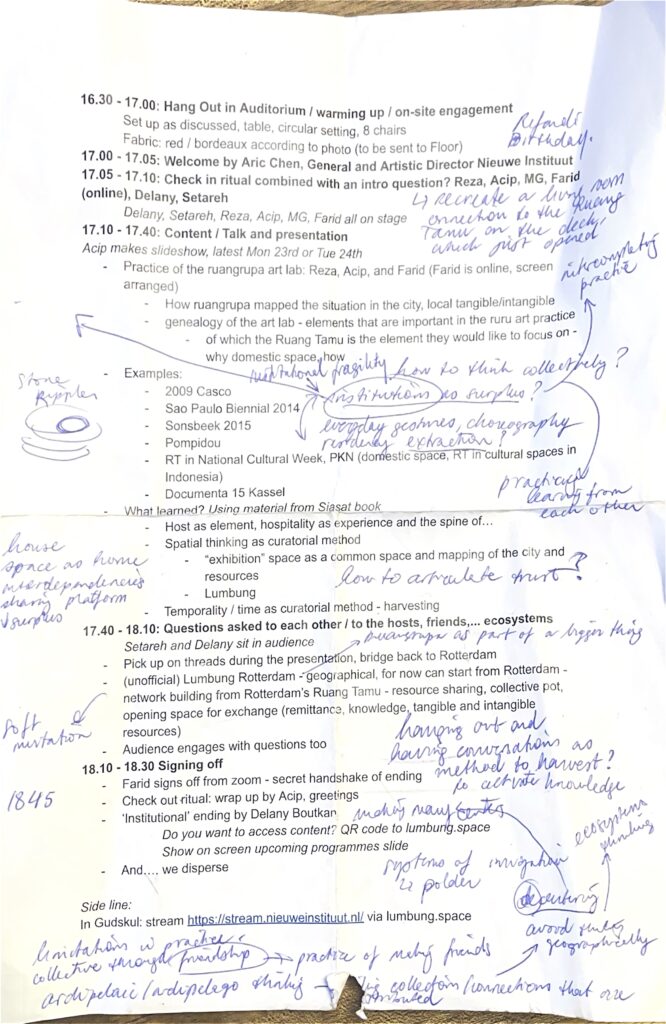 16.30 - 17.00: Hang Out in Auditorium / warming up / on-site engagement
Set up as discussed, table, circular setting, 8 chairs
Fabric: red / bordeaux according to photo (to be sent to Floor)
Birthday.
17.00 - 17.05: Welcome by Aric Chen, General and Artistic Director Nieuwe Instituut
17.05 - 17.10: Check in ritual combined with an intro question? Reza, Acip, MG, Farid
(online), Delany, Setareh
↳ recreate a living room
Delany, Setareh, Reza, Acip, MG, Farid all on stage
connection to the Ruang
Tamu on the deck,
which just opened
17.10 - 17.40: Content / Talk and presentation
Acip makes slideshow, latest Mon 23rd or Tue 24th
- Practice of the ruangrupa art lab: Reza, Acip, and Farid (Farid is online, screen
arranged)
practice
- How ruangrupa mapped the situation in the city, local tangible/intangible
- genealogy of the art lab - elements that are important in the ruru art practice
- of which the Ruang Tamu is the element they would like to focus on -
why domestic space, how
institutional fragility
how to think collectively?
- Examples:
institutions as surplus?
stone
ripples
- 2009 Casco
- Sao Paulo Biennial 2014
everyday gestures, choreography
- Sonsbeek 2015
extraction?
- Pompidou
- RT in National Cultural Week, PKN (domestic space, RT in cultural spaces in
Indonesia)
- Documenta 15 Kassel
learning from
each other
- What learned? Using material from Siasat book
- Host as element, hospitality as experience and the spine of…
- Spatial thinking as curatorial method
house
space as home
interdependencies
sharing platform
surplus
- “exhibition” space as a common space and mapping of the city and
resources
how to articulate trust?
- Lumbung
- Temporality / time as curatorial method - harvesting
17.40 - 18.10: Questions asked to each other / to the hosts, friends,... ecosystems
Setareh and Delany sit in audience
ruangrupa as part of a bigger thing
- Pick up on threads during the presentation, bridge back to Rotterdam
- (unofficial) Lumbung Rotterdam - geographical, for now can start from Rotterdam -
network building from Rotterdam’s Ruang Tamu - resource sharing, collective pot,
opening space for exchange (remittance, knowledge, tangible and intangible
resources)
soft
hanging out and
having conversations as
method to harvest?
to activate knowledge
- Audience engages with questions too
18.10 - 18.30 Signing off
- Farid signs off from zoom - secret handshake of ending
1845
- Check out ritual: wrap up by Acip, greetings
- ‘Institutional’ ending by Delany Boutkan
making many
Do you want to access content? QR code to lumbung.space
Show on screen upcoming programmes slide
ecosystems
thinking
- And…. we disperse
systems of irrigation
polder
decentering
avoid
geographically
Side line:
In Gudskul: stream https://stream.nieuweinstituut.nl/ via lumbung.space
limitations practice.
collective through friendship → practice of making friends
archipelago thinking → connections that are
distributed